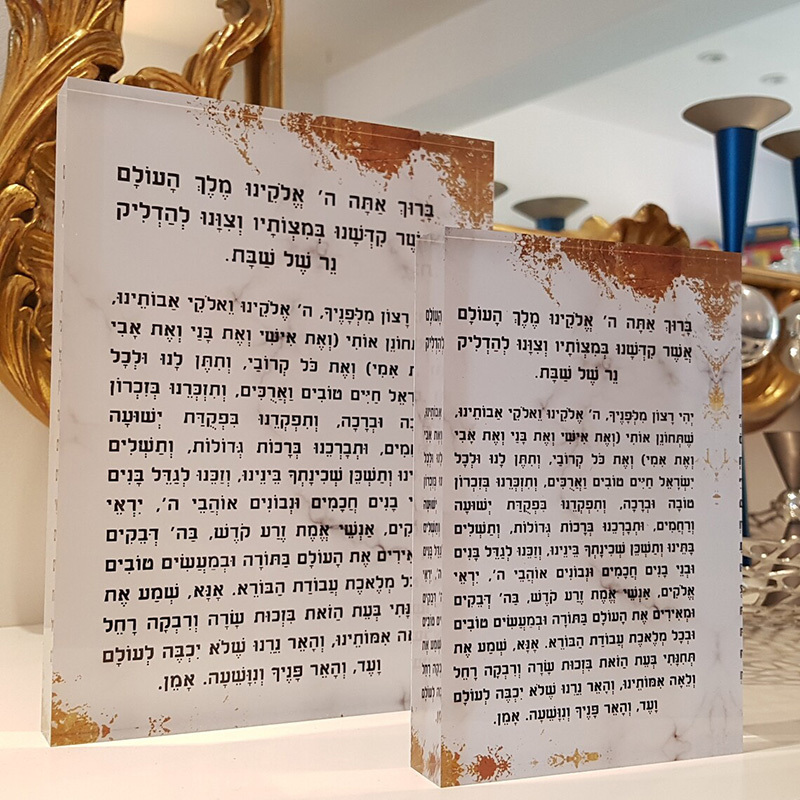 בָּרוּךְ אַתָּה ה׳ אֱלֹקֵינוּ מֶלֶךְ הָעוֹלָם
קִדְּשָׁנוּ בְּמִצְוֹתָיו וְצִוָּנוּ לְהַדְלִיק
נֵר שֶׁל שַׁבָּת.
רָצוֹן מִלְּפָנֶיךָ, ה׳ אֱלֹקֵינוּ וֵאלֹקֵי אֲבוֹתֵינוּ,
אוֹתִי (וְאֶת אִישִׁי וְאֶת בָּנַי וְאֶת אָבִי
אִמִּי) וְאֶת כֹּל קְרוֹבַי, וְתִתֵּן לָנוּ וּלְכָל
חַיִּים טוֹבִים וַאֲרֻכִּים, וְתִזְכְּרֵנוּ בְּזִכְרוֹן
וּבְרָכָה, וְתִפְקְדֵנוּ בִּפְקֻדַּת יְשׁוּעָה
וּתְבָרְכֵנוּ בְּרָכוֹת גְּדוֹלוֹת, וְתַשְׁלִים
וְתַשְׁכֵּן שְׁכִינָתְךָ בֵּינֵינוּ, וְזַכֵּנוּ לְגַדֵּל בָּנִים
בָנִים חֲכָמִים וּנְבוֹנִים אוֹהֲבֵי ה׳, יִרְאֵי
אַנְשֵׁי אֱמֶת זֶרַע קֹדֶשׁ, בַּה׳ דְּבֵקִים
אֶת הָעוֹלָם בַּתּוֹרָה וּבְמַעֲשִׂים טוֹבִים
מְלֶאכֶת עֲבוֹדַת הַבּוֹרֵא. אָנָּא, שְׁמַע אֶת
בְּעֵת הַזֹּאת בִּזְכוּת שָׂרָה וְרִבְקָה רָחֵל
אִמּוֹתֵינוּ, וְהָאֵר נֵרֵנוּ שֶׁלֹּא יִכְבֶּה לְעוֹלָם
וָעֶד, וְהָאֵר פָּנֶיךָ וְנִוָּשֵׁעָה. אָמֵן.
בָּרוּךְ אַתָּה ה׳ אֱלֹקֵינוּ מֶלֶךְ הָעוֹלָם
אֲשֶׁר קִדְּשָׁנוּ בְּמִצְוֹתָיו וְצִוָּנוּ לְהַדְלִיק
נֵר שֶׁל שַׁבָּת.
יְהִי רָצוֹן מִלְּפָנֶיךָ, ה׳ אֱלֹקֵינוּ וֵאלֹקֵי אֲבוֹתֵינוּ,
שֶׁתְּחוֹנֵן אוֹתִי (וְאֶת אִישִׁי וְאֶת בָּנַי וְאֶת אָבִי
וְאֶת אִמִּי) וְאֶת כֹּל קְרוֹבַי, וְתִתֵּן לָנוּ וּלְכָל
יִשְׂרָאֵל חַיִּים טוֹבִים וַאֲרֻכִּים, וְתִזְכְּרֵנוּ בְּזִכְרוֹן
טוֹבָה וּבְרָכָה, וְתִפְקְדֵנוּ בִּפְקֻדַּת יְשׁוּעָה
וְרַחֲמִים, וּתְבָרְכֵנוּ בְּרָכוֹת גְּדוֹלוֹת, וְתַשְׁלִים
בָּתֵּינוּ וְתַשְׁכֵּן שְׁכִינָתְךָ בֵּינֵינוּ, וְזַכֵּנוּ לְגַדֵּל בָּנִים
וּבְנֵי בָנִים חֲכָמִים וּנְבוֹנִים אוֹהֲבֵי ה׳, יִרְאֵי
אֱלֹקִים, אַנְשֵׁי אֱמֶת זֶרַע קֹדֶשׁ, בַּה׳ דְּבֵקִים
וּמְאִירִים אֶת הָעוֹלָם בַּתּוֹרָה וּבְמַעֲשִׂים טוֹבִים
וּבְכָל מְלֶאכֶת עֲבוֹדַת הַבּוֹרֵא. אָנָּא, שְׁמַע אֶת
תְּחִנָּתִי בְּעֵת הַזֹּאת בִּזְכוּת שָׂרָה וְרִבְקָה רָחֵל
וְלֵאָה אִמּוֹתֵינוּ, וְהָאֵר נֵרֵנוּ שֶׁלֹּא יִכְבֶּה לְעוֹלָם
וָעֶד, וְהָאֵר פָּנֶיךָ וְנִוָּשֵׁעָה. אָמֵן.